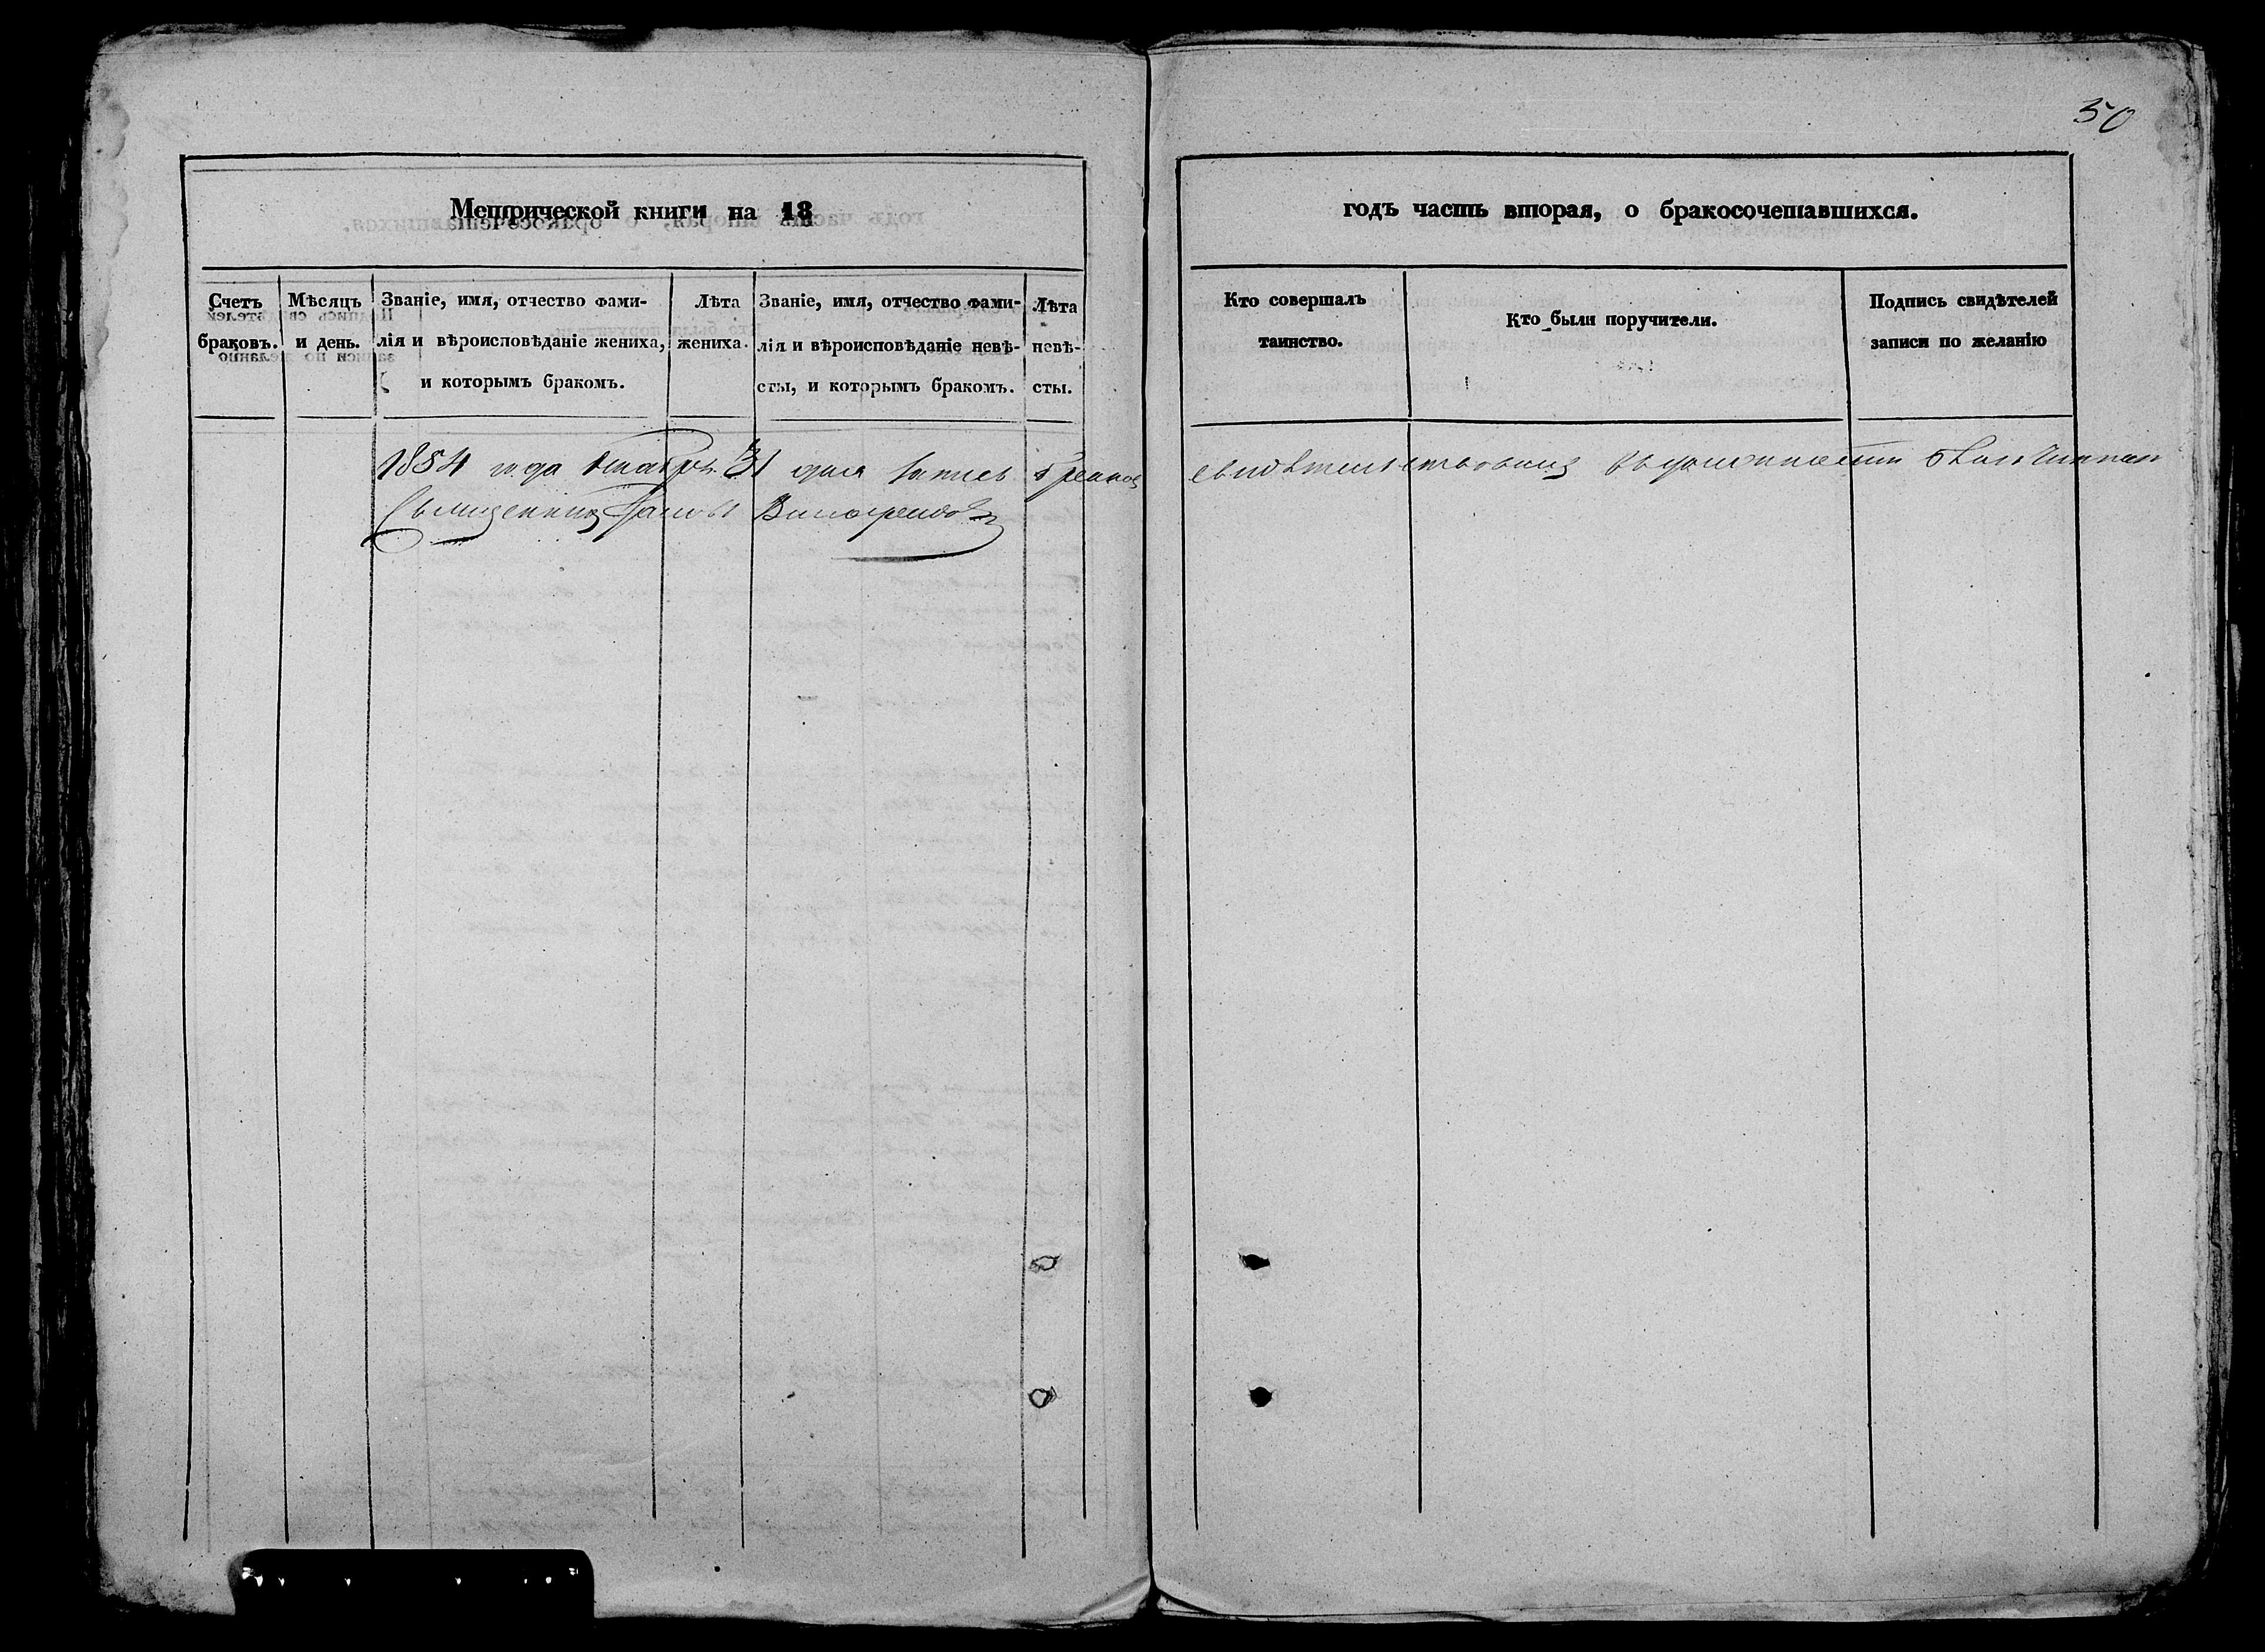 50
Метрической книги на 18
годъ часть вторая, о бракосочетавшихся.
Счетъ браковъ.
Мѣсяцъ и день.
Званіе, имя, отчество фами-
лія и вѣроисповѣданіе жениха,
и которымъ бракомъ.
Лѣта
жениха.
Званіе, имя, отчество фами-
лія и вѣроисповѣданіе невѣ-
сты, и которымъ бракомъ.
Лѣта
невѣ-
сты.
Кто совершалъ
таинство.
Кто были поручители.
Подпись свидѣтелей
записи по желанію
1854 года Декабря 31 дня запись
Священникъ